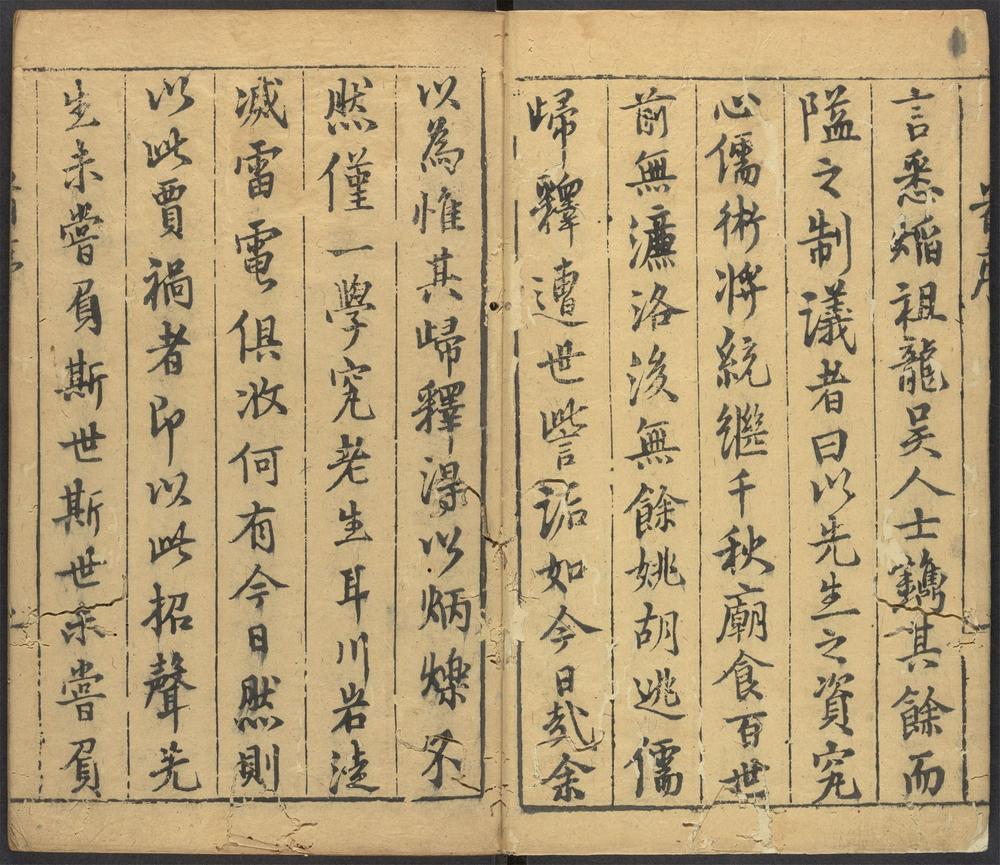 言悉燬祖龍吴人士鐫其餘而
隘之制議者曰以先生之資究
心儒術將統繼千秋廟食百世
前無濂洛後無餘姚胡逃儒
歸釋遭世訾詬如今日哉余
以為惟其歸釋得以炳爍不
然僅一學究老生耳川岩湮
滅雷電俱收何有今日然則
以此賈禍者即以此招聲先
生未嘗負斯世斯世未嘗負